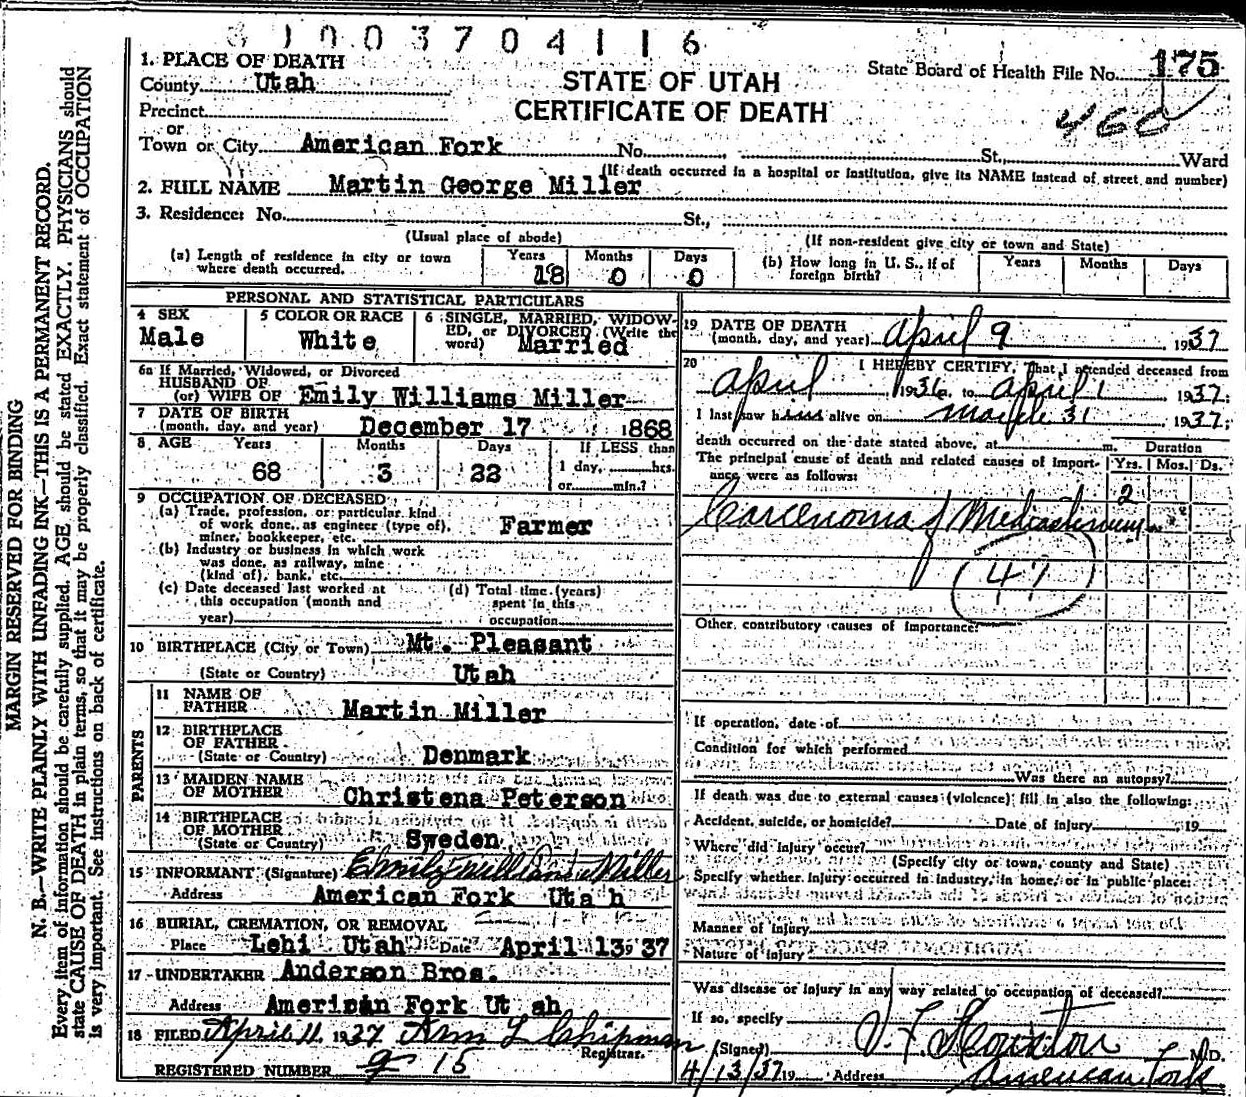 31003704116
1. PLACE OF DEATH
County Utah
Precinct
or
Town or City American Fork No. St., Ward
STATE OF UTAH
CERTIFICATE OF DEATH
State Board of Health File No. 175
460
(If death occurred in a hospital or institution, give its NAME instead of street and number)
2. FULL NAME Martin George Miller
3. Residence: No. St.,
(Usual place of abode) (If non-resident give city or town and State)
(a) Length of residence in city or town where death occurred. Years 18 Months 0 Days 0
(b) How long in U. S., if of foreign birth? Years Months Days
PERSONAL AND STATISTICAL PARTICULARS
4 SEX Male
5 COLOR OR RACE White
6 SINGLE, MARRIED, WIDOWED, or DIVORCED (Write the word) Married
6a If Married, Widowed, or Divorced
HUSBAND OF
(or) WIFE OF Emily Williams Miller
7 DATE OF BIRTH
(month, day, and year) December 17 1868
8 AGE Years 68 Months 3 Days 22 If LESS than 1 day, hrs. or min.?
9 OCCUPATION OF DECEASED
(a) Trade, profession, or particular kind of work done, as engineer (type of), miner, bookkeeper, etc. Farmer
(b) Industry or business in which work was done, as railway, mine (kind of), bank, etc.
(c) Date deceased last worked at this occupation (month and year)
(d) Total time (years) spent in this occupation
10 BIRTHPLACE (City or Town) Mt. Pleasant
(State or Country) Utah
PARENTS
11 NAME OF FATHER Martin Miller
12 BIRTHPLACE OF FATHER (State or Country) Denmark
13 MAIDEN NAME OF MOTHER Christena Peterson
14 BIRTHPLACE OF MOTHER (State or Country) Sweden
15 INFORMANT (Signature) Emily Williams Miller
Address American Fork Utah
16 BURIAL, CREMATION, OR REMOVAL
Place Lehi Utah Date April 13, 37
17 UNDERTAKER Anderson Bros.
Address American Fork Ut ah
18 FILED April 11, 1937 Chipman
Registrar.
REGISTERED NUMBER 15
19 DATE OF DEATH
(month, day, and year) April 9 1937
20 I HEREBY CERTIFY, That I attended deceased from
April 1936 to April 1 1937;
I last saw h alive on March 31 1937;
death occurred on the date stated above, at m.
Duration
Yrs. Mos. Ds.
The principal cause of death and related causes of importance were as follows:
2
Carcenoma of Mediastinum
47
Other contributory causes of importance:
If operation, date of
Condition for which performed
Was there an autopsy?
If death was due to external causes (violence) fill in also the following:
Accident, suicide, or homicide? Date of injury 19
Where did injury occur?
(Specify city or town, county and State)
Specify whether injury occurred in industry, in home, or in public place:
Manner of injury
Nature of injury
Was disease or injury in any way related to occupation of deceased?
If so, specify
(Signed) M.D.
4/13/37 19 Address American Fork
MARGIN RESERVED FOR BINDING
N. B.—WRITE PLAINLY WITH UNFADING INK—THIS IS A PERMANENT RECORD.
Every item of information should be carefully supplied. AGE should be stated EXACTLY. PHYSICIANS should
state CAUSE OF DEATH in plain terms, so that it may be properly classified. Exact statement of OCCUPATION
is very important. See instructions on back of certificate.